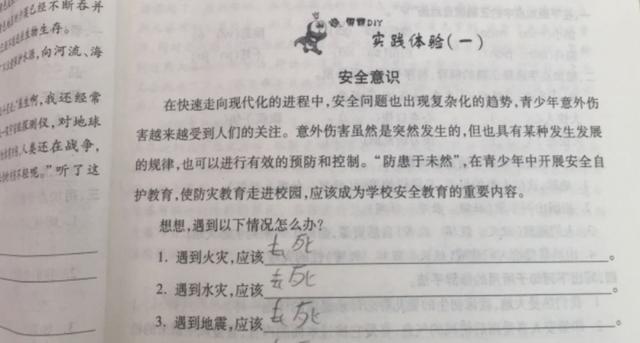 已经不断吞并
生物生存。
水源,向河流、海
生啊,我还经常
探测仪,对地球
人类还在战争,
轻呢。”听了这
智慧DIY
实践体验(一)
安全意识
在快速走向现代化的进程中,安全问题也出现复杂化的趋势,青少年意外伤
害越来越受到人们的关注。意外伤害虽然是突然发生的,但也具有某种发生发展
的规律,也可以进行有效的预防和控制。“防患于未然”,在青少年中开展安全自
护教育,使防灾教育走进校园,应该成为学校安全教育的重要内容。
想想,遇到以下情况怎么办?
1. 遇到火灾,应该去死
2. 遇到水灾,应该去死
3. 遇到地震,应该去死